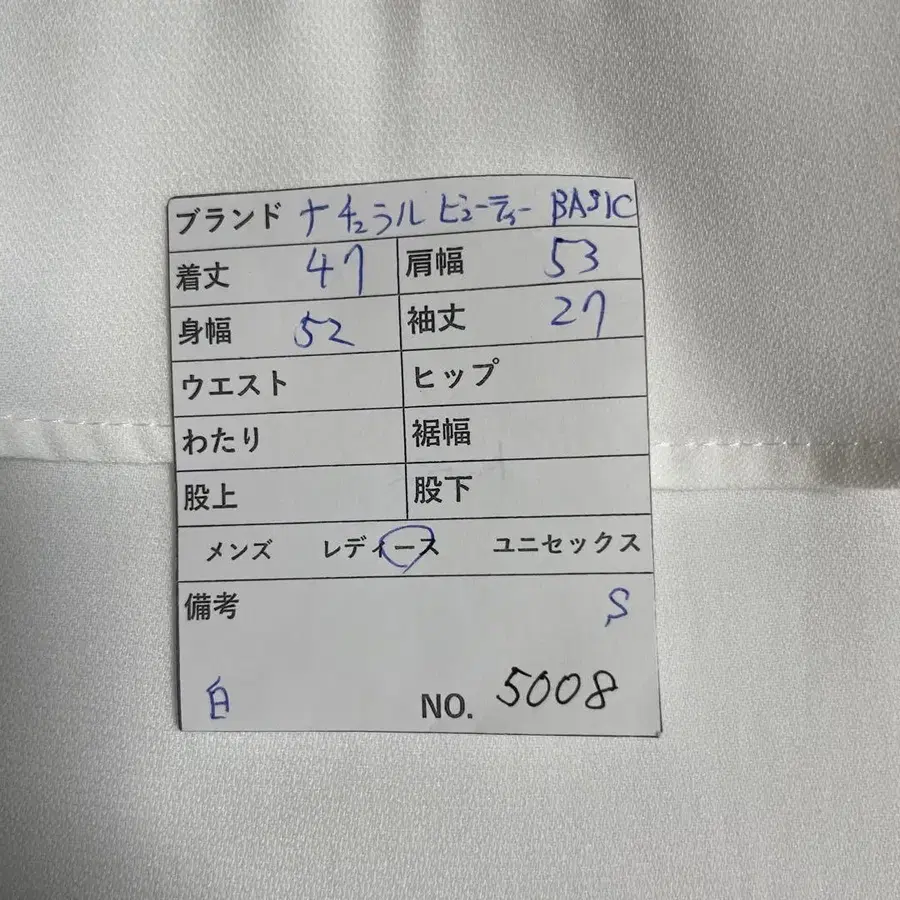 ブランド ナチュラル ビューティー BASIC
着丈 47 肩幅 53
身幅 52 袖丈 27
ウエスト ヒップ
わたり 裾幅
股上 股下
メンズ レディース ユニセックス
備考 S
白 NO. 5008